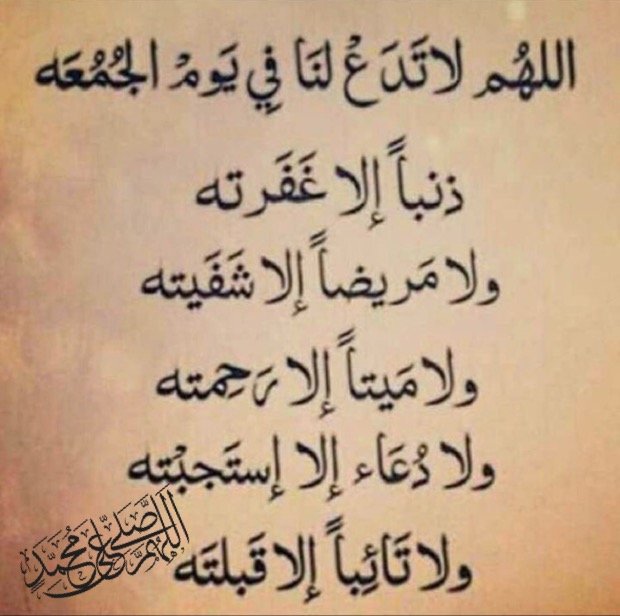 اللهُم لا تَدَعْ لنَا فِي يَومْ الجُمُعَه
ذنباً إلا غَفَرته
ولا مَريضاً إلا شَفَيته
ولا مَيتاً إلا رَحِمته
ولا دُعَاء إلا إستَجبْته
ولا تَائِباً إلا قَبلتَه
اللهم صَلِّ على مُحَمَّدٍ